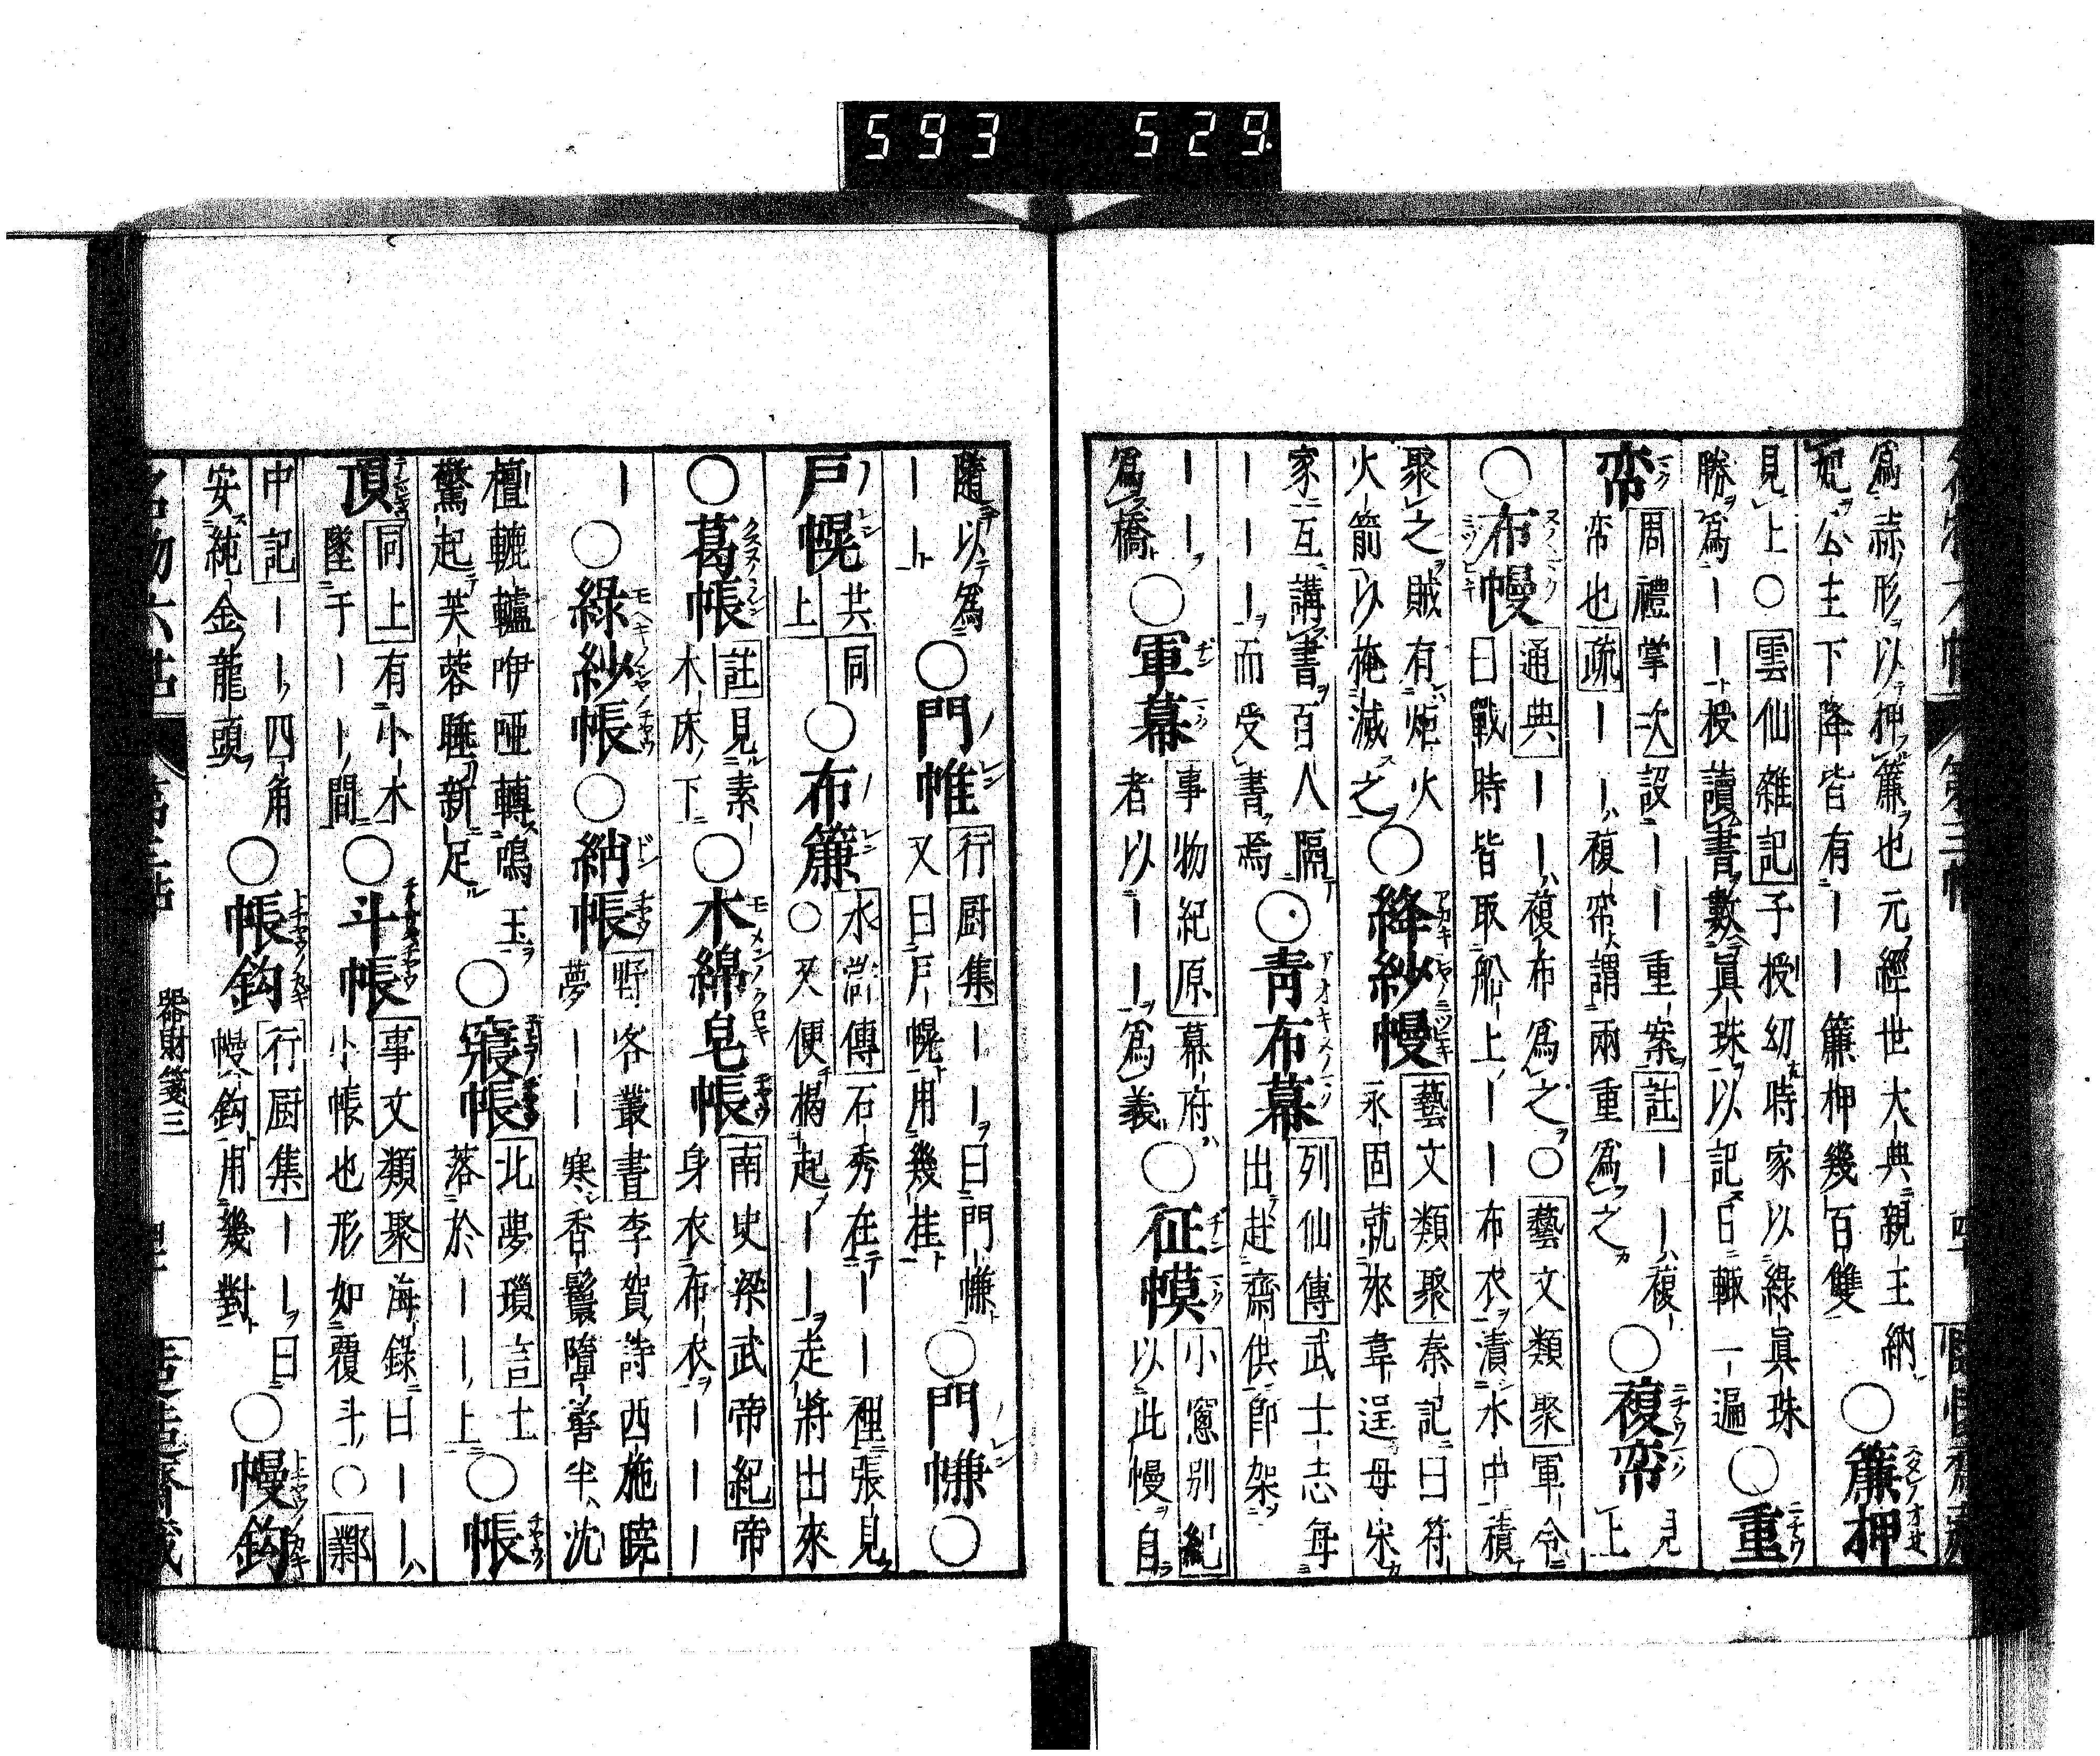 593 529
爲赤形以押簾也元經世大典親王納
妃公主下降皆有ーー簾押幾百雙
○簾押
見上○雲仙雜記子授幼時家以綠眞珠
勝爲ーー授讀書數眞珠以記日輙一遍
○重
帟
周禮掌次設ーー重案註ーー複
帟也疏ーー複帟謂兩重爲之
○複帟
見上
○布幔
通典ーー複布爲之○藝文類聚軍令
曰戰時皆取船上ーー布衣漬水中積
聚之賊有炬火
火箭以掩滅之
○絳紗幔
藝文類聚秦記曰符
永固就來韋逞母宋
家互講書百人隔
ーーー而受書焉
○青布幕
列仙傳武士志毎
出赴齋供卽架
ーー
爲橋
○軍幕
事物紀原幕府
者以ーー爲義
○征幙
小窻別紀
以此幔自
隨以爲
ーー
○門帷
行厨集ーー曰門㡘
又曰戸幌用幾桂
○門㡘
○
戸幌
共同
上
○布簾
水滸傳石秀在ーー裡張見
○又便楬起ーー走將出來
○葛帳
註見素ー
木床下
○木綿皂帳
南史梁武帝紀帝
身衣布衣ーー
ー
○綠紗帳
○納帳
野客叢書李賀詩西施曉
夢ーー寒香鬟墮髻半沈
檀轆轤咿啞轉鳴玉
驚起芙蓉睡新足
○寢帳
北夢瑣言士
落於ーー上
○帳
頂
同上有小木
墜于ーー間
○斗帳
事文類聚海錄曰ーー
小帳也形如覆斗○鄴
中記ーー四角
安純金龍頭
○帳鈎
行厨集ーー曰
幔鈎用幾對
○幔鈎
器財箋三